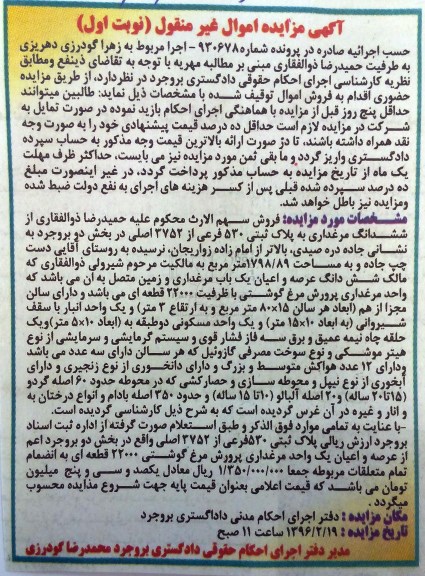 آگهی مزایده اموال غیر منقول (نوبت اول)
حسب اجرائیه صادره در پرونده شماره ۹۳۰۶۷۸ - اجرا مربوط به زهرا گودرزی دهریزی
به طرفیت حمیدرضا ذوالفقاری مبنی بر مطالبه مهریه با توجه به تقاضای ذینفع ومطابق
نظریه کارشناسی اجرای احکام حقوقی دادگستری بروجرد در نظردارد، از طریق مزایده
حضوری اقدام به فروش اموال توقیف شده با مشخصات ذیل نماید: طالبین میتوانند
حداقل پنج روز قبل از مزایده با هماهنگی اجرای احکام بازید نموده در صورت تمایل به
شرکت در مزایده لازم است حداقل ده درصد قیمت پیشنهادی خود را به صورت وجه
نقد همراه داشته باشند، تا در صورت ارائه بالاترین قیمت وجه مذکور به حساب سپرده
دادگستری واریز گردد و ما بقی ثمن مورد مزایده نیز می بایست، حداکثر ظرف مهلت
یک ماه از تاریخ مزایده به حساب مذکور پرداخت گردد، در غیر اینصورت مبلغ
ده درصد سپرده شده قبلی پس از کسر هزینه های اجرای به نفع دولت ضبط شده
ومزایده نیز باطل خواهد شد.
مشخصات مورد مزایده: فروش سهم الارث محکوم علیه حمیدرضا ذوالفقاری از
ششدانگ مرغداری به پلاک ثبتی ۵۳۰ فرعی از ۳۷۵۲ اصلی در بخش دو بروجرد به
نشانی جاده دره صیدی، بالاتر از امام زاده زواریجان، نرسیده به روستای آقایی دست
چپ جاده و به مساحت ۱۷۹۸/۸۹متر مربع به مالکیت مرحوم شیرولی ذوالفقاری که
مالک شش دانگ عرصه و اعیان یک باب مرغداری و زمین متصل به آن می باشد که
واحد مرغداری پرورش مرغ گوشتی با ظرفیت ۲۲۰۰۰ قطعه ای می باشد و دارای سالن
مجزا از هم (ابعاد هر سالن ۱۵×۸۰ متر مربع و به ارتفاع ۳ متر) و یک واحد انبار با سقف
شیروانی (به ابعاد ۱۰×۱۵ متر) و یک واحد مسکونی دوطبقه به (ابعاد ۱۰×۵ متر)ویک
حلقه چاه نیمه عمیق و برق سه فاز فشار قوی و سیستم گرمایشی و سرمایشی از نوع
هیتر موشکی و نوع سوخت مصرفی گازوئیل که هر سالن دارای سه عدد می باشد
ودارای ۱۲ عدد هواکش متوسط و بزرگ و دارای دانخوری از نوع زنجیری و دارای
آبخوری از نوع نیپل و محوطه سازی و حصارکشی که در محوطه حدود ۶۰ اصله گردو
(۱۵تا۲۰ ساله) و۲۰ اصله آلبالو (۱۰تا ۱۵ ساله) و حدود ۳۵۰ اصله بادام و انواع درختان به
و انار و غیره در آن غرس گردیده است که به شرح ذیل کارشناسی گردیده است.
-با عنایت به تمامی موارد فوق الذکر و طبق استعلام صورت گرفته از اداره ثبت اسناد
بروجرد ارزش ریالی پلاک ثبتی ۵۳۰فرعی از ۳۷۵۲ اصلی واقع در بخش دو بروجرد اعم
از عرصه و اعیان یک واحد مرغداری پرورش مرغ گوشتی ۲۲۰۰۰ قطعه ای به انضمام
تمام متعلقات مربوطه جمعا ۱/۳۵۰/۰۰۰/۰۰۰ ریال معادل یکصد و سی و پنج میلیون
تومان می باشد که قیمت اعلامی بعنوان قیمت پایه جهت شروع مزایده محسوب
میگردد.
مکان مزایده : دفتر اجرای احکام مدنی داداگستری بروجرد
تاریخ مزایده : ۱۳۹۶/۲/۱۹ ساعت ۱۱ صبح
مدیر دفتر اجرای احکام حقوقی دادگستری بروجرد محمدرضا گودرزی